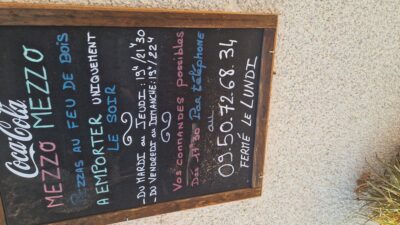 Coca-Cola
MEZZO MEZZO
PIZZAS AU FEU DE BOIS
A EMPORTER UNIQUEMENT
LE SOIR
- DU MARDI au JEUDI : 19H/21H30
- DU VENDREDI au DIMANCHE : 19H/22H
VOS COMMANDES possibles
Dès 17H30 Par téléphone
au :
09.50.72.68.34
FERMÉ LE LUNDI